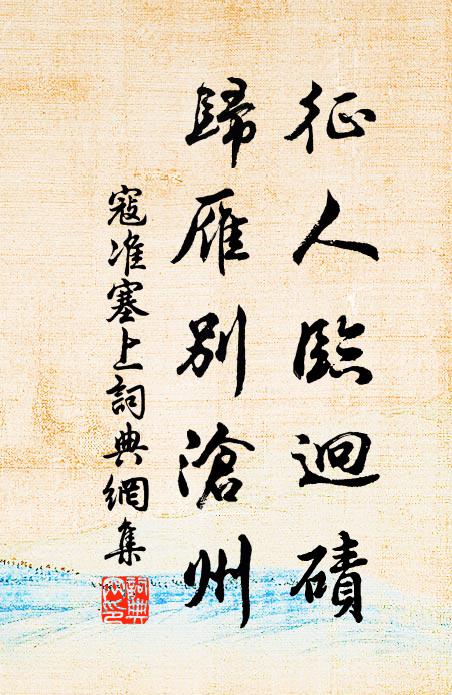 征人臨迥磧
歸雁別滄州
寇准塞上詞典網集